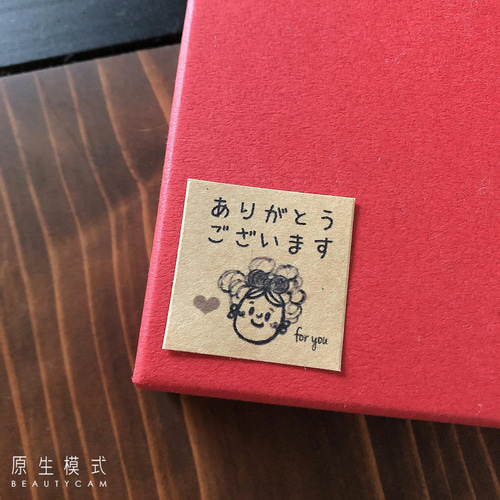 ありがとう
ございます
for you
原生模式
BEAUTYCAM